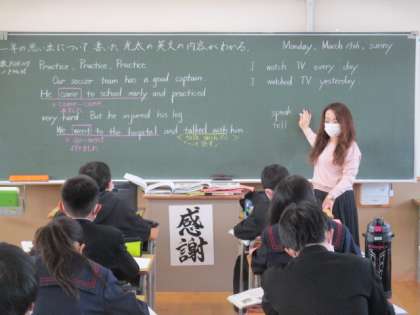 一年の思い出について書いた光太の英文の内容がわかる。
Monday, March 14th, sunny
Practice, Practice, Practice
I watch TV every day
Our soccer team has a good captain.
I watched TV yesterday
He came to school early and practiced
came-come
very hard. But he injured his leg
speak
tell
We went to the hospital and talked with him
go-went
感謝